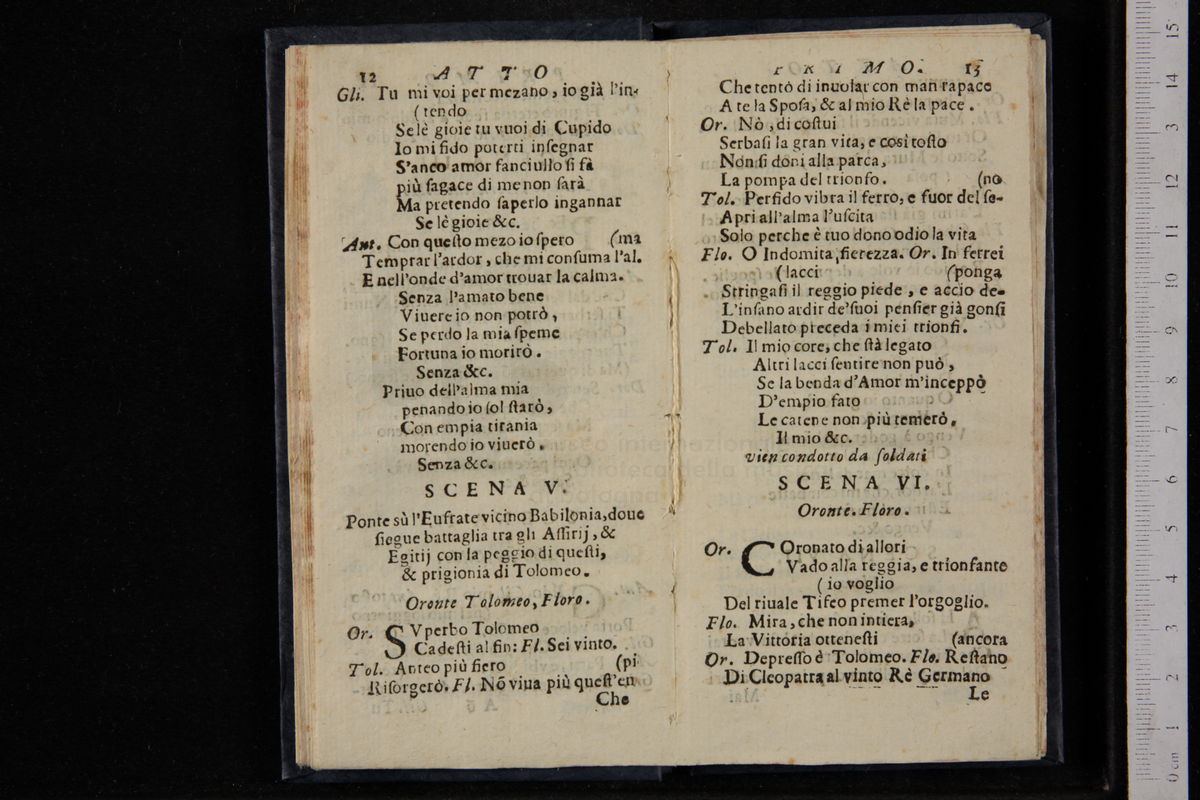 12 ATTO
Gli. Tu mi voi per mezano, io già l'in-
(tendo
Se lè gioie tu vuoi di Cupido
Io mi fido poterti inſegnar
S'anco amor fanciullo ſi fà
più ſagace di me non ſarà
Ma pretendo ſaperlo ingannar
Se lè gioie &c.
Ant. Con queſto mezo io ſpero (ma
Temprar l'ardor, che mi conſuma l'al.
E nell'onde d'amor trouar la calma.
Senza l'amato bene
Viuere io non potrò,
Se perdo la mia ſpeme
Fortuna io morirò.
Senza &c.
Priuo dell'alma mia
penando io ſol ſtarò,
Con empia tirania
morendo io viuerò.
Senza &c.
SCENA V.
Ponte sù l'Eufrate vicino Babilonia, doue
ſiegue battaglia tra gli Aſſirij, &
Egitij con la peggio di queſti,
& prigionia di Tolomeo.
Oronte Tolomeo, Floro.
Or. SVperbo Tolomeo
Cadeſti al fin: Fl. Sei vinto.
Tol. Anteo più fiero (pi
Riſorgerò. Fl. Nõ viua più queſt'em
Che
PRIMO. 13
Che tentò di inuolar con man rapace
A te la Spoſa, & al mio Rè la pace.
Or. Nò, di coſtui
Serbaſi la gran vita, e così toſto
Non ſi doni alla parca,
La pompa del trionfo. (no
Tol. Perfido vibra il ferro, e fuor del ſe-
Apri all'alma l'uſcita
Solo perche è tuo dono odio la vita
Flo. O Indomita fierezza. Or. In ferrei
(lacci (ponga
Stringaſi il reggio piede, e accio de-
L'inſano ardir de'ſuoi penſier già gonfi
Debellato preceda i miei trionfi.
Tol. Il mio core, che ſtà legato
Altri lacci ſentire non può,
Se la benda d'Amor m'inceppò
D'empio fato
Le catene non più temerò.
Il mio &c.
vien condotto da ſoldati
SCENA VI.
Oronte. Floro.
Or. COronato di allori
Vado alla reggia, e trionfante
(io voglio
Del riuale Tifeo premer l'orgoglio.
Flo. Mira, che non intiera,
La Vittoria otteneſti (ancora
Or. Depreſſo è Tolomeo. Flo. Reſtano
Di Cleopatra al vinto Rè Germano
Le